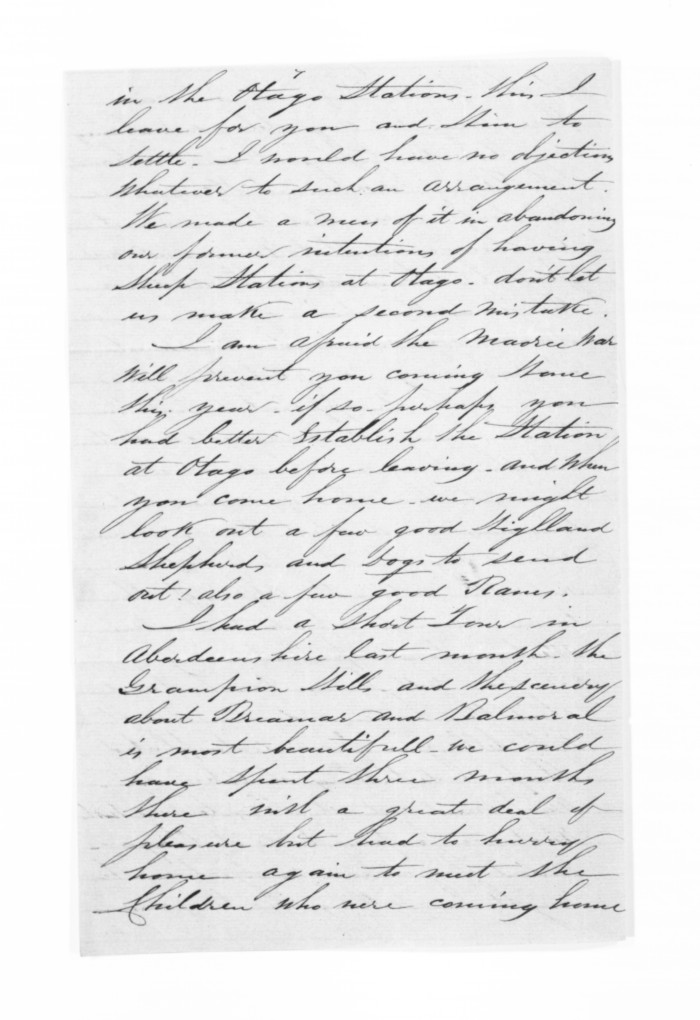 in the Otago Stations. this I
leave for you and Him to
settle. I would have no objection
whatever to such an arrangement.
We made a mess of it in abandoning
our former intentions of having
Sheep Stations at Otago. don't let
us make a second mistake.
I am afraid the Maorie War
will prevent you coming Home
this year. if so perhaps you
had better Establish the Station
at Otago before leaving. and when
you come home we might
look out a few good Highland
Shepherds and Dogs to send
out! also a few good Rams.
I had a Short Tour in
Aberdeenshire last month. the
Grampion Hills and the scenery
about Breamar and Balmoral
is most beautifull we could
have spent three months
there with a great deal of
pleasure but had to hurry
home again to meet the
Children who were coming home